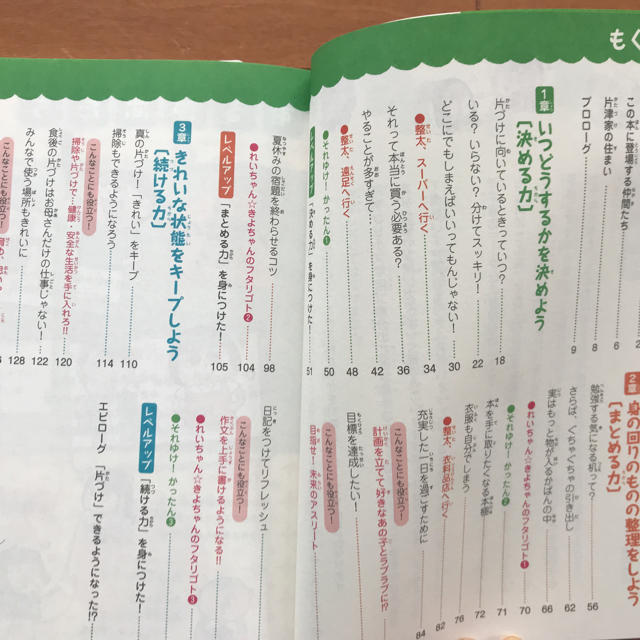 もく
この本に登場する仲間たち
片津家の住まい
プロローグ
2
6
8
9
1章 いつどうするかを決めよう
［決める力］
片づけに向いているときっていつ？ 18
いる？いらない？分けてスッキリ！ 22
どこにでもしまえばいいってもんじゃない！ 30
●整太、スーパーへ行く 34
それって本当に買う必要ある？ 36
やることが多すぎて… 42
●整太、遠足へ行く 48
●それゆけ！かったん❶ 50
レベルアップ 「決める力」を身につけた！ 51
2章 身の回りのものの整理をしよう
［まとめる力］
勉強する気になる机って？ 56
さらば、ぐちゃぐちゃの引き出し 62
実はもっと物が入るかばんの中 66
●れいちゃん☆きよちゃんのフタリゴト❶ 70
●それゆけ！かったん❷ 71
本を手に取りたくなる本棚 72
衣服も自分でしまう 76
●整太、衣料品店へ行く 82
充実した一日を過ごすために 84
こんなことにも役立つ！
計画を立てて好きなあの子とラブラブに!?
目標を達成したい！
こんなことにも役立つ！
目指せ！未来のアスリート
夏休みの宿題を終わらせるコツ 98
●れいちゃん☆きよちゃんのフタリゴト❷ 104
レベルアップ 「まとめる力」を身につけた！ 105
3章 きれいな状態をキープしよう
［続ける力］
真の片づけ！「きれい」をキープ 110
掃除もできるようになろう 114
こんなことにも役立つ！
掃除や片づけで…健康・安全な生活を手に入れろ!! 120
食後の片づけはお母さんだけの仕事じゃない！ 122
みんなで使う場所もきれいに 128
こんなことにも役立つ！
日記をつけてリフレッシュ
こんなことにも役立つ！
作文を上手に書けるようになる!!
●れいちゃん☆きよちゃんのフタリゴト❸
●それゆけ！かったん❸
レベルアップ 「続ける力」を身につけた！
エピローグ 「片づけ」できるようになった!?